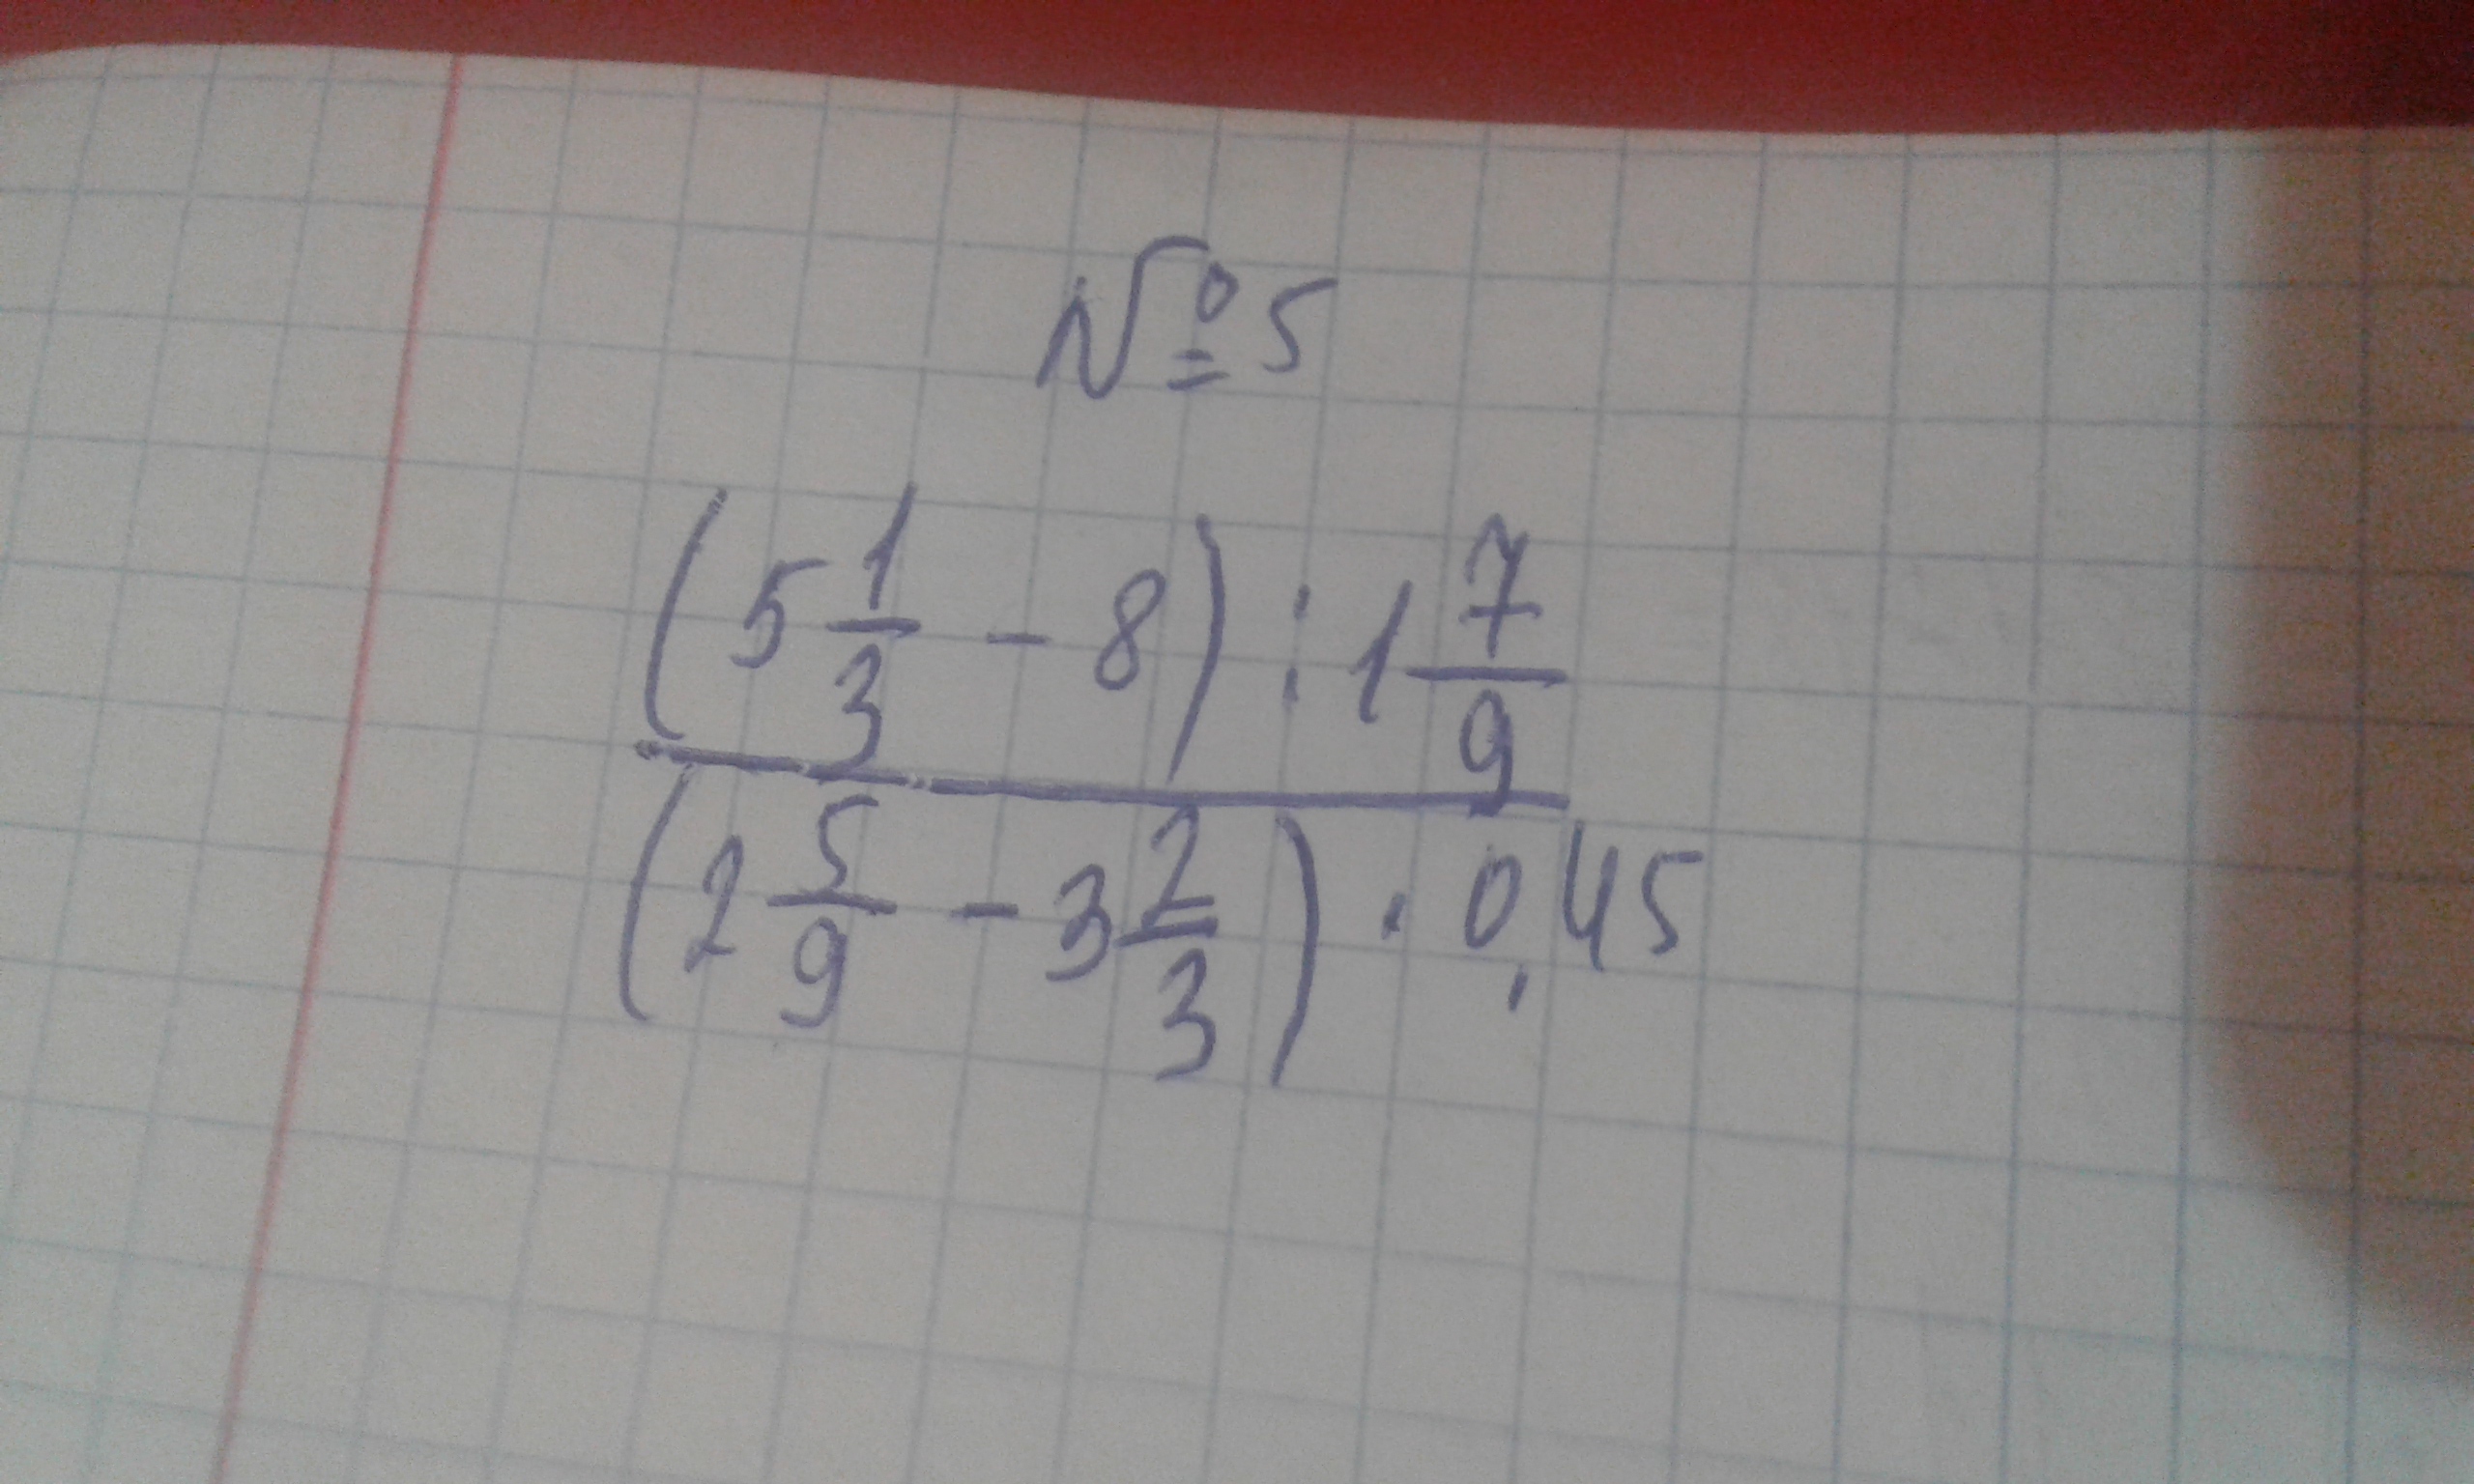 № 5
(5 1/3 - 8) : 1 7/9
(2 5/9 - 3 2/3) · 0,45